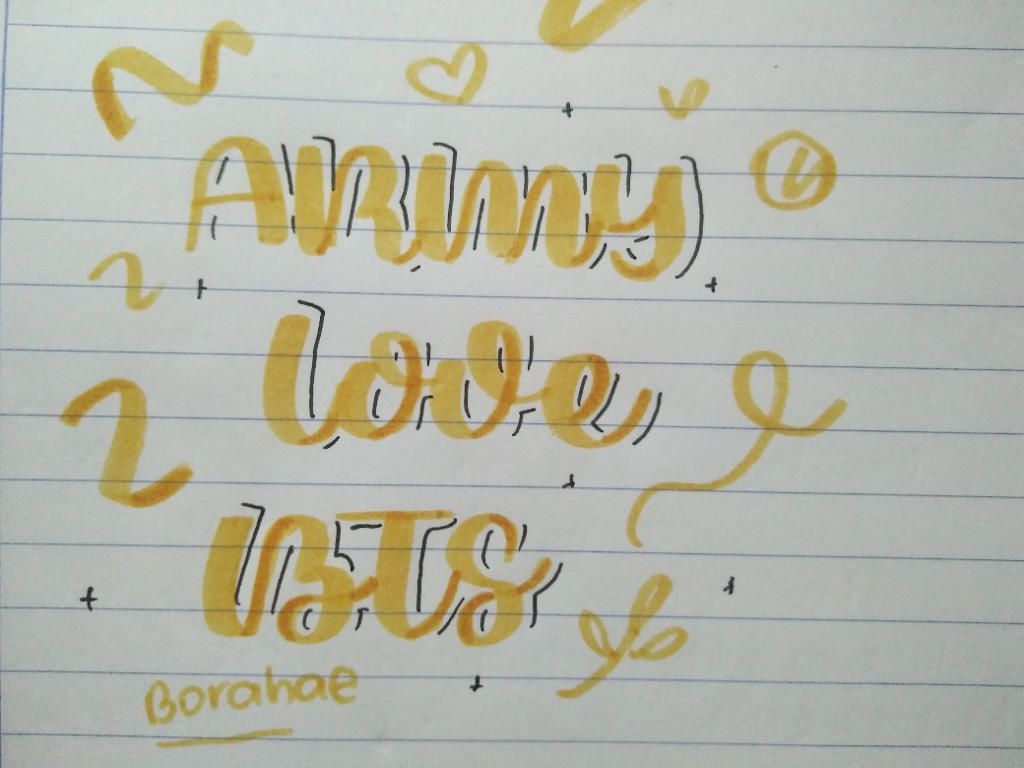 ARmy
love
BTS
Borahae